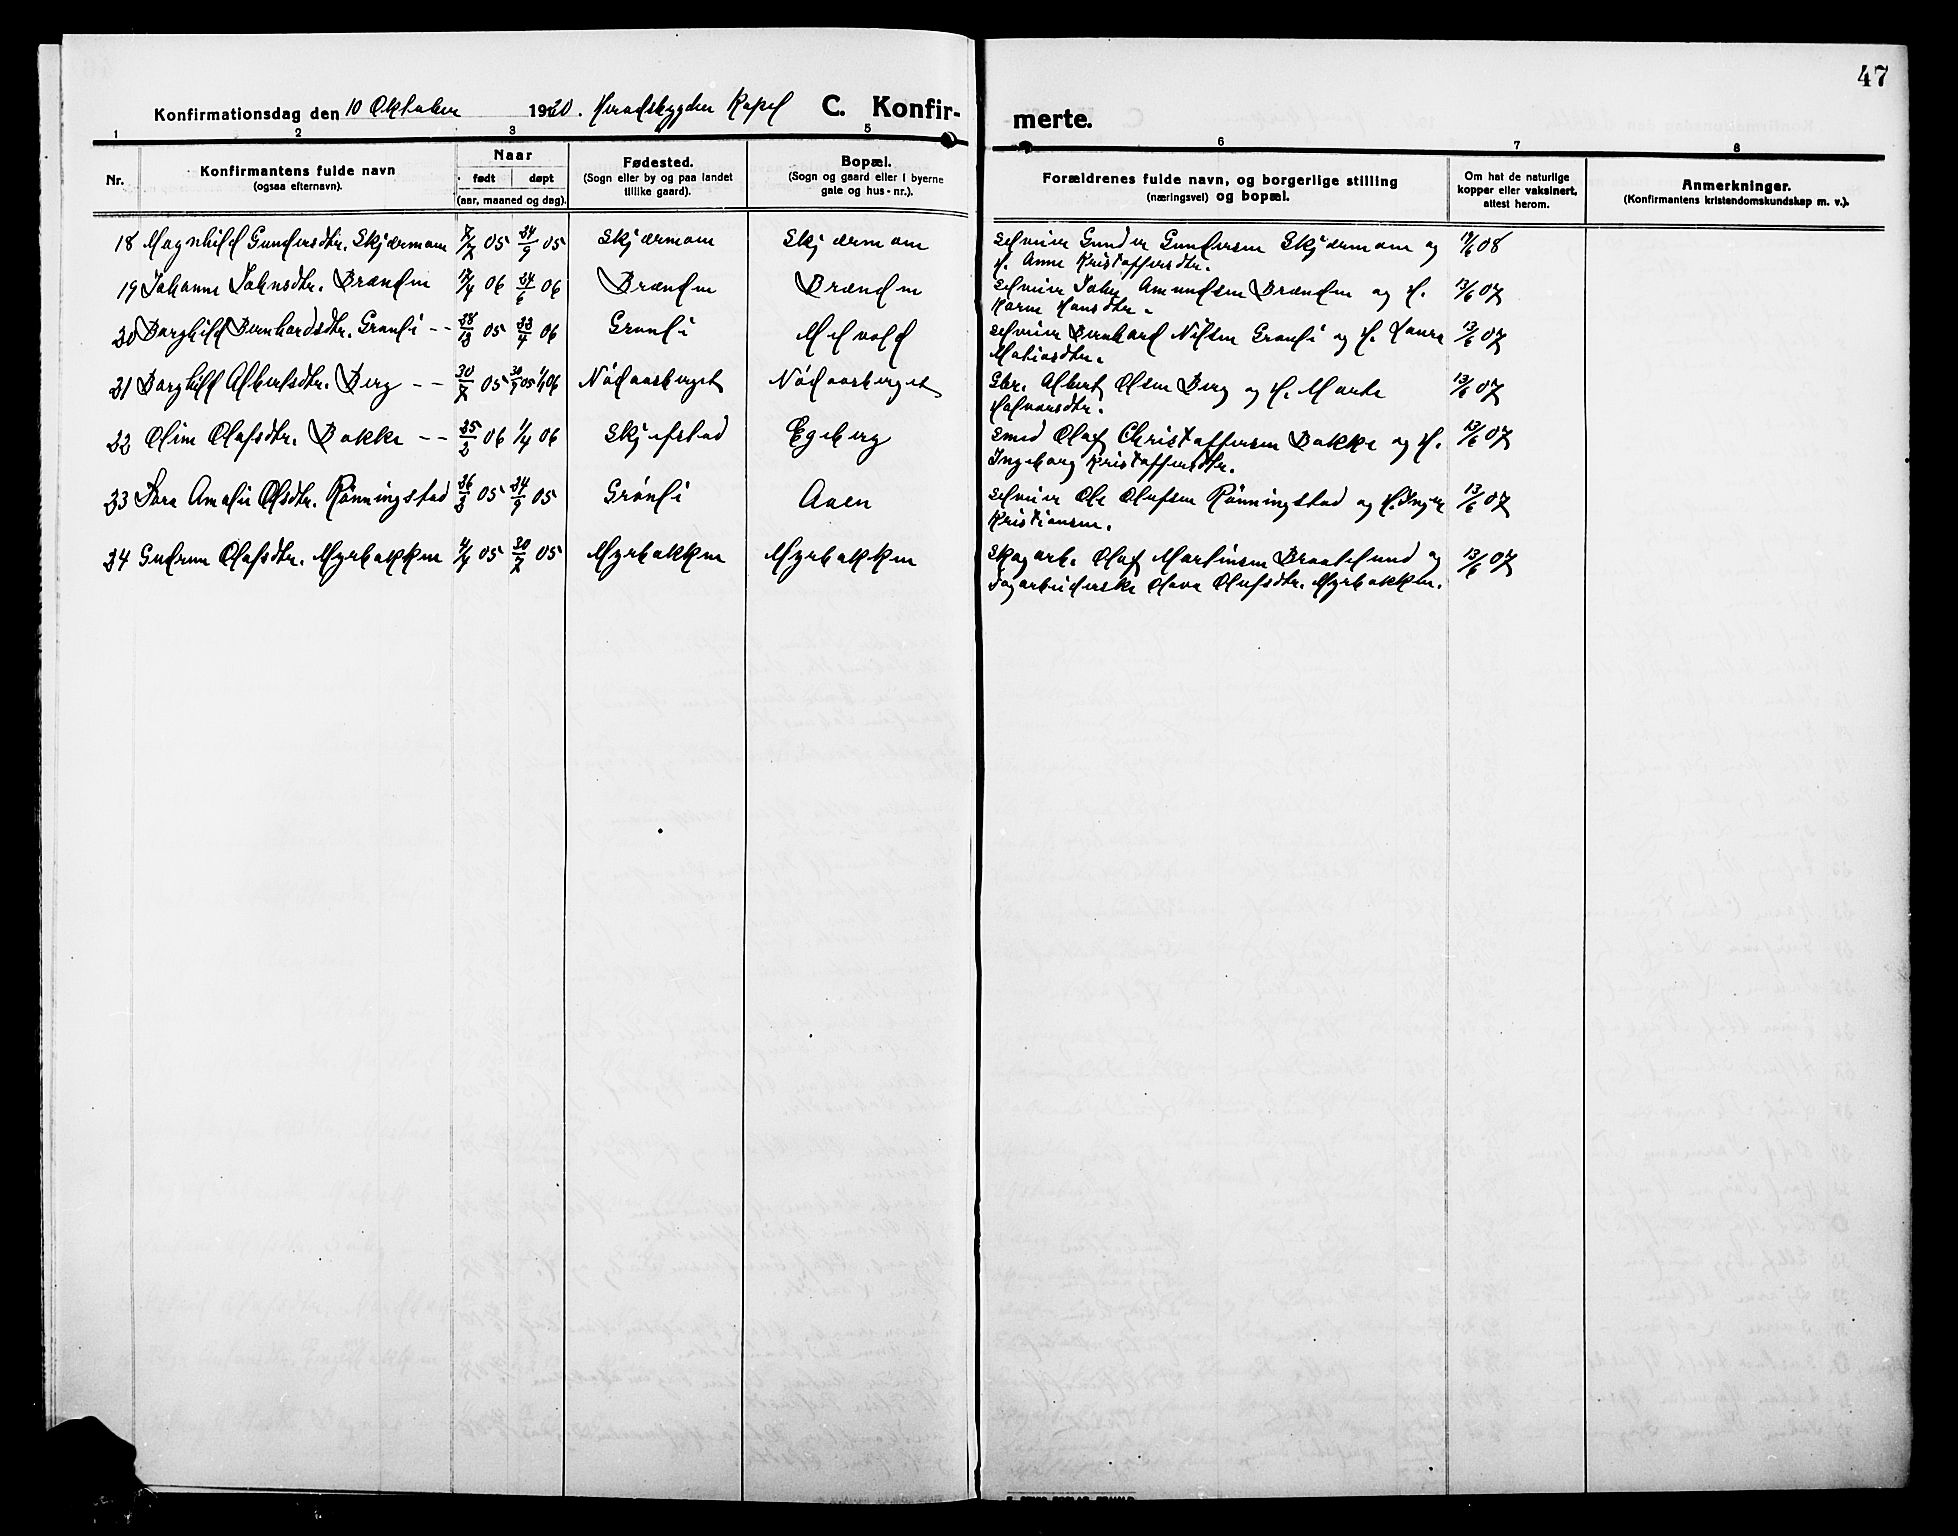 47
Konfirmationsdag den 10 Oktober 1920. Heradsbygden Kapel C. Konfir-
merte.
1 2 3 5 6 7 8
Nr. Konfirmantens fulde navn (ogsaa efternavn). Naar født døpt (aar, maaned og dag). Fødested. (Sogn eller by og paa landet tillike gaard). Bopæl. (Sogn og gaard eller i byerne gate og hus-nr.). Forældrenes fulde navn, og borgerlige stilling (næringsvei) og bopæl. Om hat de naturlige kopper eller vaksinert, attest herom. Anmerkninger. (Konfirmantens kristendomskundskap m. v.).
18 Magnhild Gundersdtr. Skjærmom 7/7 05 24/9 05 Skjærmom Skjærmom Selveier Gunder Gundersen Skjærmom og
H. Anne Kristoffersdtr.
19 Johanne Johnsdtr. Brænden 17/4 06 24/6 06 Brænden Brænden Selveier John Amundsen Brænden og H. 13/6 07
Karen Hansdtr.
20 Borghild Bernhardsdtr. Grønli -- 05 22/4 06 Grønli Melvold Selveier Bernhard Nilsen Grønli og H. Laura 13/6 07
Matiasdtr.
21 Borghild Albertsdtr. Berg -- 30/7 05 Nödaasberget Nödaasberget Gbr. Albert Olsen Berg og H. Marte 13/6 07
Halvorsdtr.
22 Oline Olafsdtr. Bakke -- 25/2 06 1/4 06 Skjefstad Egeberg Smed Olaf Christoffersen Bakke og H. 13/6 07
Ingeborg Kristoffersdtr.
23 Tora Amalie Olsdtr. Rønningstad 05 24/9 05 Grønli Aaen Selveier Ole Olufsen Rønningstad og H. Inger 13/6 07
Kristiansen.
24 Gudrun Olafsdtr. Myrbakken 4/4 05 30/7 05 Myrbakken Myrbakken Skogarb. Olaf Martinsen Braatelund og 13/6 07
Dagarbeiderske Olava Olufsdtr. Myrbakken.